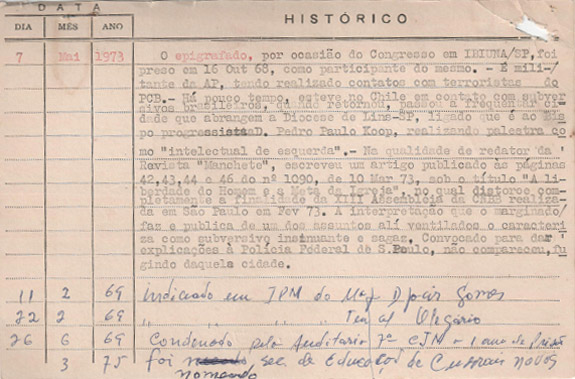 DATA
HISTÓRICO
DIA MÊS ANO
7 Mai 1973 O epigrafado, por ocasião do Congresso em IBIUNA/SP, foi
preso em 16 Out 68, como participante do mesmo. - É mili-/
tante da AP, tendo realizado contatos com terroristas do
PCB.- Há pouco tempo, esteve no Chile em contato com subver
sivos brasileiros, quando retornou, passou a frequentar ci-
dade que abrangem a Diocese de Lins-SP, ligado que é ao Bis
po progressista D. Pedro Paulo Koop, realizando palestra co
mo "intelectual de esquerda".- Na qualidade de redator da '
Revista "Manchete", escreveu um artigo publicado às páginas
42,43,44 e 46 do nº 1090, de 10 Mar 73, sob o título "A li-
berdade do Homem e a Meta da Igreja", no qual distorce com-
pletamente a finalidade da XIII Assembléia da CNBB realiza-
da em São Paulo em Fev 73. A interpretação que o marginado/
faz e publica de um dos assuntos ali ventilados o caracteri
za como subversivo insinuante e sagas, Convocado para dar '
explicações à Polícia Federal de S.Paulo, não compareceu,fu
gindo daquela cidade.
11 2 69 Indiciado em IPM do Maj Gomes
22 2 69 " " " Ten Cel Olegário
26 6 69 Condenado pela Auditoria 7ª CJM a 1 ano de prisão
3 75 foi nomeado sec. de Educação de Currais Novos
nomeado